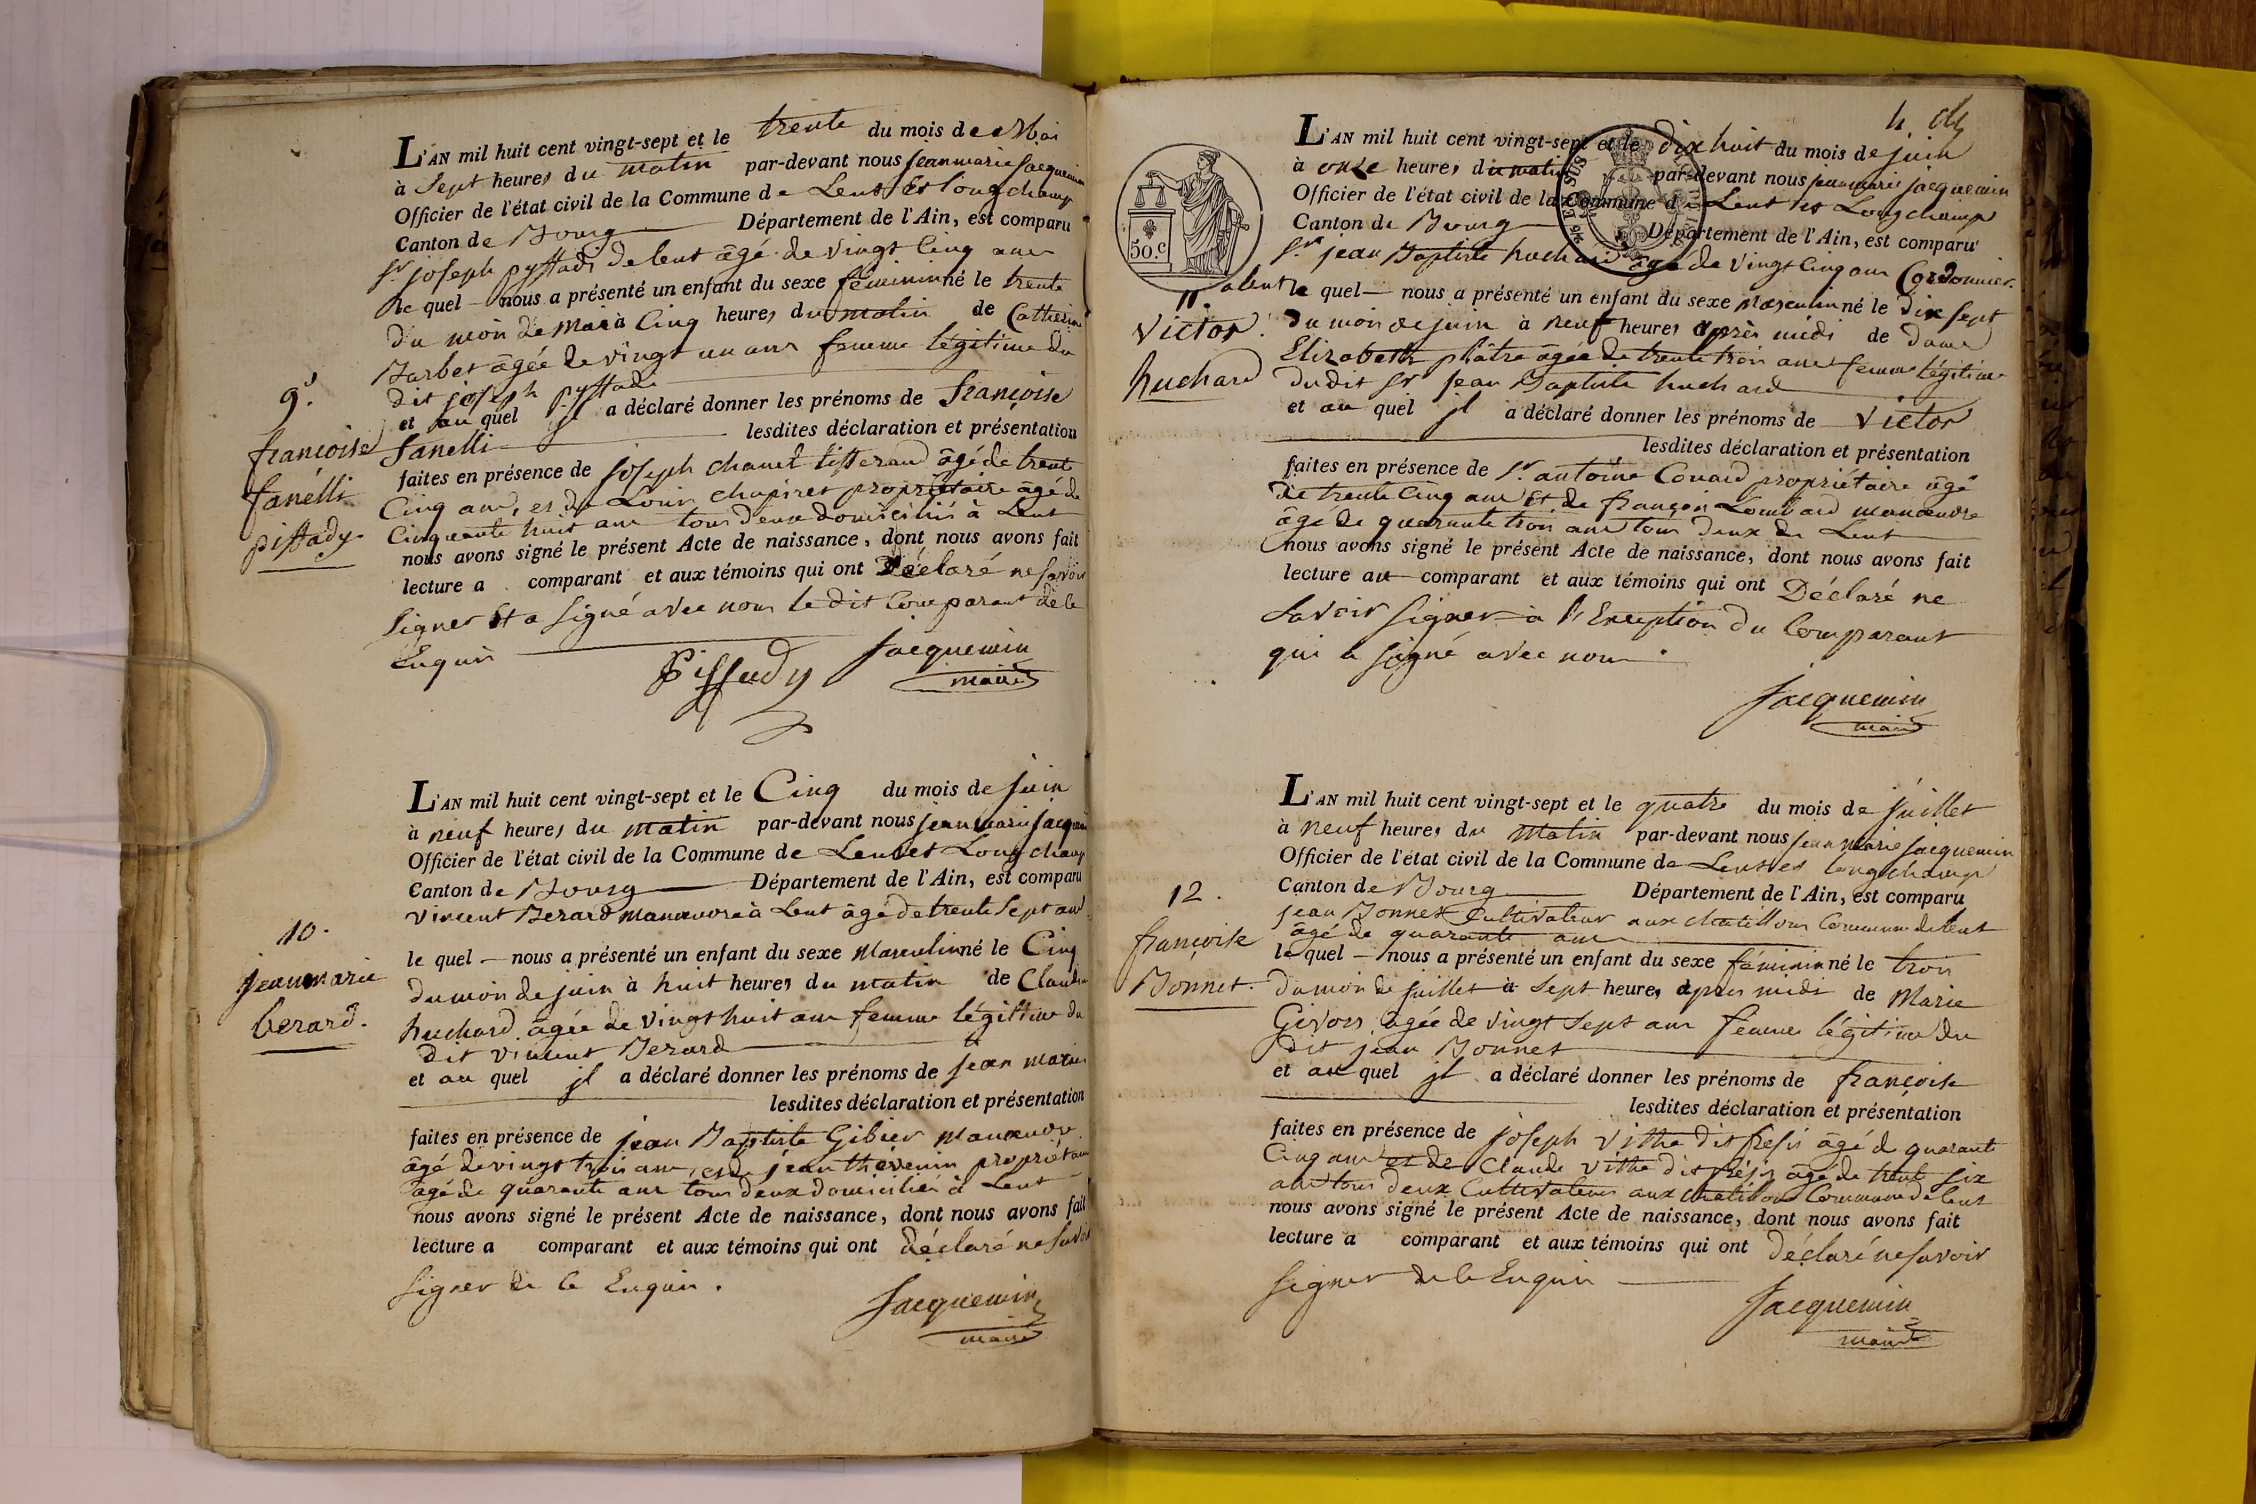 L'AN mil huit cent vingt-sept et le trente du mois de Mai
à sept heures du matin par-devant nous jean marie jacquemin
Officier de l'état civil de la Commune de Lent et longchamp
Canton de Bourg Département de l'Ain, est comparu
Sr joseph pissady de lent âgé de vingt Cinq ans
le quel nous a présenté un enfant du sexe féminin né le trente
du mois de Mai à Cinq heures du matin de Catherine
Barbet âgée de vingt un ans femme légitime du
dit joseph pissady
et au quel il a déclaré donner les prénoms de françoise
fanelli lesdites déclaration et présentation
faites en présence de joseph chanel tisserand âgé de trente
Cinq ans, et de Louis chapiret propriétaire âgé de
Cinquante huit ans tous deux domiciliés à Lent
nous avons signé le présent Acte de naissance, dont nous avons fait
lecture a comparant et aux témoins qui ont Déclaré ne savoir
signer Et a signé avec nous le dit Comparant de ce
Enquis
Pissady jacquemin
maire
9.
françoise
fanélli
pissady.
L'AN mil huit cent vingt-sept et le Cinq du mois de juin
à neuf heures du matin par-devant nous jean marie jacquemin
Officier de l'état civil de la Commune de Lent et Longchamp
Canton de Bourg Département de l'Ain, est comparu
vincent Berard manœuvre à Lent âgé de trente sept ans
le quel nous a présenté un enfant du sexe Masculin né le Cinq
du mois de juin à huit heures du matin de Claudine
huchard âgée de vingt huit ans femme légitime du
dit vincent Berard
et au quel il a déclaré donner les prénoms de jean marie
lesdites déclaration et présentation
faites en présence de jean Baptiste Gibier manœuvre
âgé de vingt trois ans, et de jean thévenin propriétaire
âgé de quarante ans tous deux domiciliés à Lent
nous avons signé le présent Acte de naissance, dont nous avons fait
lecture a comparant et aux témoins qui ont déclaré ne savoir
signer de ce Enquis.
jacquemin
maire
10.
jean marie
berard.
4
L'AN mil huit cent vingt-sept et le dix huit du mois de juin
à onze heures du matin par-devant nous jean marie jacquemin
Officier de l'état civil de la Commune de Lent et Longchamp
Canton de Bourg Département de l'Ain, est comparu
Sr jean Baptiste huchard âgé de vingt Cinq ans Cordonnier
a lent le quel nous a présenté un enfant du sexe Masculin né le dix sept
du mois de juin à neuf heures après midi de dame
Elizabeth plâtre âgée de trente trois ans femme légitime
du dit Sr jean Baptiste huchard
et au quel il a déclaré donner les prénoms de victor
lesdites déclaration et présentation
faites en présence de Sr antoine Conard propriétaire âgé
de trente Cinq ans Et de françois Lombard manœuvre
âgé de quarante trois ans tous deux de Lent
nous avons signé le présent Acte de naissance, dont nous avons fait
lecture au comparant et aux témoins qui ont Déclaré ne
savoir signer à l'Exception du Comparant
qui a signé avec nous.
jacquemin
maire
50.c
11.
victor
huchard
L'AN mil huit cent vingt-sept et le quatre du mois de juillet
à neuf heures du matin par-devant nous jean marie jacquemin
Officier de l'état civil de la Commune de Lent et longchamp
Canton de Bourg Département de l'Ain, est comparu
jean Bonnet Cultivateur aux chatillons Commune de lent
âgé de quarante ans
le quel nous a présenté un enfant du sexe féminin né le trois
du mois de juillet à sept heures après midi de Marie
Givors âgée de vingt sept ans femme légitime du
dit jean Bonnet
et au quel il a déclaré donner les prénoms de françoise
lesdites déclaration et présentation
faites en présence de joseph vithe dit âgé de quarante
Cinq ans et de Claude vithe dit âgé de trente six
ans tous deux Cultivateurs aux chatillons Commune de lent
nous avons signé le présent Acte de naissance, dont nous avons fait
lecture a comparant et aux témoins qui ont déclaré ne savoir
signer de ce Enquis
jacquemin
maire
12.
françoise
Bonnet.